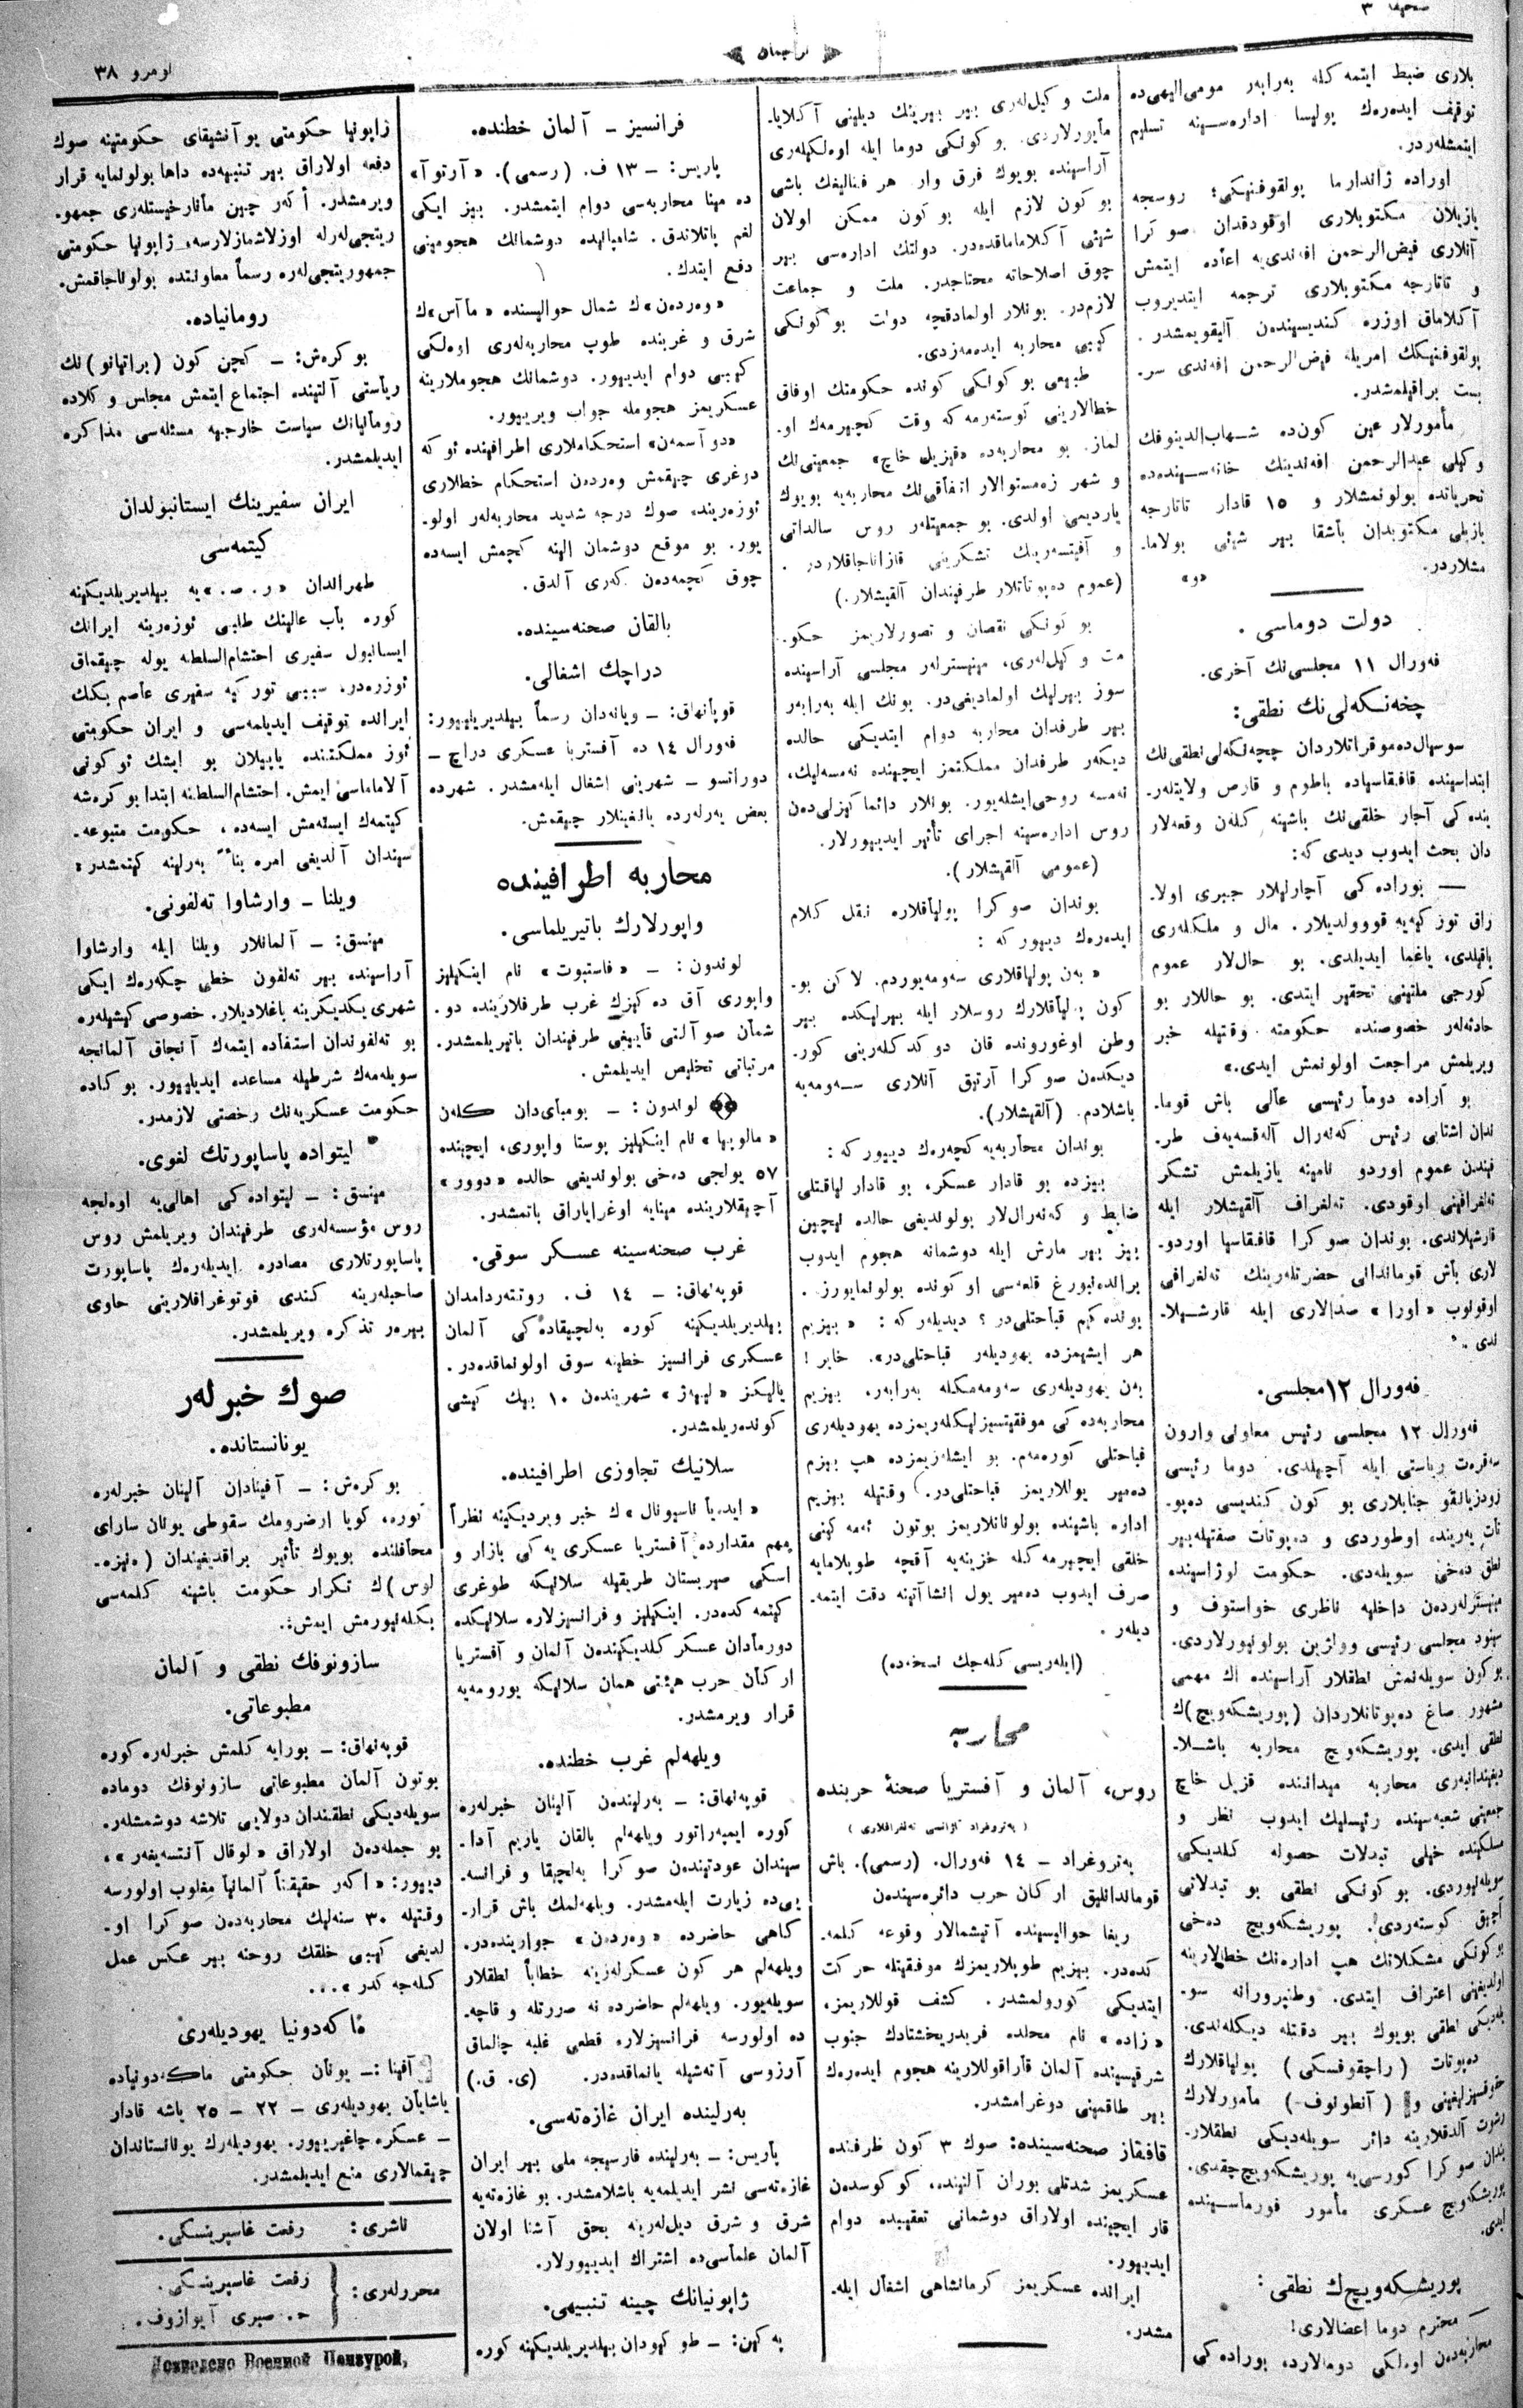 صحیفه ۳
ترجمان
نومرو ۳۸
بلاری ضبط ایتمه كله به‌رابه‌ر مومی‌الیهی‌ده
توقیف ایده‌ره‌ك پولیسا اداره‌سینه تسلیم
ایتمشله‌ردر.
اوراده ژاندارما پولقوفنیكی؛ روسجه
یازیلان مكتوبلاری اوقودقدان صوڭرا
آنلاری فیض‌الرحمن افه‌ندی‌یه اعاده ایتمش
و تاتارجه مكتوبلاری ترجمه ایتدیروب
آڭلاماق اوزره كندیسیندن آلیقویمشدر.
پولقوفنیكك امریله فیض‌الرحمن افه‌ندی سر-
بست براقیلمشدر.
مأمورلار عین كون‌ده شهاب‌الدینوفك
وكیلی عبدالرحمن افه‌ندینك خانه‌سینده‌ده
تحریاتده بولونمشلار و ۱۵ قادار تاتارجه
یازیلی مكتوبدان باشقا بیر شیئی بولاما-
مشلاردر.
«و»
دولت دوماسی.
فه‌ورال ۱۱ مجلسی‌نك آخری.
چخه‌نكه‌لی‌نك نطقی:
سوسیال‌ده‌موقراتلاردان چچه‌نكه‌لی نطقی‌نك
ابتداسینده قافقاسیاده باطوم و قارص ولایتله‌ر-
ینده‌كی آجار خلقی‌نك باشینه كله‌ن وقعه‌لار
دان بحث ایدوب دیدی كه:
— بوراده‌كی آچارلیلار جبری اولا-
راق توز كیه‌یه قووولدیلار. مال و ملكله‌ری
یاقیلدی، یاغما ایدیلدی. بو حال‌لار عموم
كورجی ملتینی تحقیر ایتدی. بو حاللار بو
حادثه‌لر خصوصنده حكومته وقتیله خبر
ویریلمش مراجعت اولونمش ایدی.»
بو آراده دوما رئیسی عالی باش قوما-
ندان اشتابی رئیس كه‌نه‌رال آله‌قسه‌یه‌ف طر-
فیندن عموم اوردو نامینه یازیلمش تشكر
ته‌لغرافینی اوقودی. ته‌لغراف آلقیشلار ایله
قارشیلاندی. بوندان صوڭرا قافقاسیا اوردو-
لاری باش قوماندانی حضرتله‌رینك ته‌لغرافی
اوقولوب «اورا» صدالاری ایله قارشیلا-
ندی.
فه‌ورال ۱۲ مجلسی.
فه‌ورال ۱۲ مجلسی رئیس معاونی وارون
سه‌قره‌ت ریاستی ایله آچیلدی. دوما رئیسی
رودزیانقو جنابلاری بو كون كندیسی ده‌پو-
تات یه‌رینده اوطوردی و ده‌پوتات صفتیله بیر
نطق ده‌خی سویله‌دی. حكومت لوژاسینده
مینیسترله‌رده‌ن داخلیه ناظری خواستوف و
سینود مجلسی رئیسی وولژین بولونیورلاردی.
بو كون سویله‌نمش نطقلار آراسینده اڭ مهمی
مشهور صاغ ده‌پوتاتلاردان (پوریشكه‌ویچ)ك
نطقی ایدی. پوریشكه‌ویچ محاربه باشلا-
دیغیندانبه‌ری محاربه میداننده قزیل خاچ
جمعیتی شعبه‌سینده رئیسلیك ایدوب نظر و
مسلكینده خیلی تبدلات حصوله كلدیكی
سویله‌نیوردی. بو كونكی نطقی بو تبدلاتی
آچیق كوسته‌ردی. پوریشكه‌ویچ ده‌خی
بو كونكی مشكلاتك هپ اداره‌نك خطالارینه
اولدیغینی اعتراف ایتدی. وطنپرورانه سو-
یله‌دیكی نطقی بویوك بیر دقتله دیكله‌ندی.
ده‌پوتات (راچقوفسكی) پولیاقلارك
حقوقسیزلیغینی و (آنطونوف) مأمورلارك
رشوت آلدقلارینه دائر سویله‌دیكی نطقلار-
ندان صوڭرا كورسی‌یه پوریشكه‌ویچ چقدی.
پوریشكه‌ویچ عسكری مأمور فورماسینده
ایدی.
پوریشكه‌ویچ‌ك نطقی:
محترم دوما اعضالاری!
محاربه‌ده‌ن اوه‌لكی دومالارده بوراده‌كی
ملت وكیل‌له‌ری بیر بیرینك دیلینی آڭلایا-
مایورلاردی. بو كونكی دوما ایله اوه‌لكیله‌ری
آراسینده بویوك فرق وار. هر فنالیغك باشی
بو كون لازم ایله بو كون ممكن اولان
شیئی آڭلاماماقده‌در. دولتك اداره‌سی بیر
چوق اصلاحاته محتاجدر. ملت و جماعت
لازم‌در. بونلار اولمادقچه دولت بو كونكی
كیبی محاربه ایده‌مه‌زدی.
طبیعی بو كونكی كونده حكومتك اوفاق
خطالارینی كوسته‌رمه‌كه وقت كچیرمه‌ك او-
لماز. بو محاربه‌ده «قیزیل خاچ» جمعیتی‌نك
و شهر زه‌مستوالار اتفاقی‌نك محاربه‌یه بویوك
یاردیمی اولدی. بو جمعیتله‌ر روس سالداتی
و آفیتسه‌رینك تشكرینی قازاناجاقلاردر.
(عموم ده‌پوتاتلار طرفیندان آلقیشلار.)
بو كونكی نقصان و تصورلاریمز حكو-
مت وكیل‌له‌ری، مینیسترله‌ر مجلسی آراسینده
سوز بیرلیك اولمادیغی‌در. بونك ایله به‌رابه‌ر
بیر طرفدان محاربه دوام ایتدیكی حالده
دیكه‌ر طرفدان مملكتمز ایچینده نه‌مسه‌لیك،
نه‌مسه روحی ایشله‌یور. بونلار دائما كیزلی‌ده‌ن
روس اداره‌سینه اجرای تأثیر ایدییورلار.
(عمومی آلقیشلار).
بوندان صوڭرا پولیاقلاره نقل كلام
ایده‌ره‌ك دییور كه:
«به‌ن پولیاقلاری سه‌ومه‌یوردم. لاكن بو-
كون پولیاقلارك روسلار ایله بیرلیكده بیر
وطن اوغورونده قان دوكدكله‌رینی كور-
دیكدن صوڭرا آرتیق آنلاری سه‌ومه‌یه
باشلادم. (آلقیشلار).
بوندان محاربه‌یه كچه‌ره‌ك دییور كه:
بیزده بو قادار عسكر، بو قادار لیاقتلی
ضابط و كه‌نه‌رال‌لار بولوندیغی حالده نیچین
بیز بیر مارش ایله دوشمانه هجوم ایدوب
برانده‌نبورغ قلعه‌سی اوكونده بولونمایورز.
بونده كیم قباحتلی‌در؟ دیدیله‌ر كه: «بیزیم
هر ایشیمزده یهودیله‌ر قباحتلی‌در». خایر!
به‌ن یهودیله‌ری سه‌ومه‌مكله به‌رابه‌ر، بیزیم
محاربه‌ده‌كی موفقیتسیزلیكله‌ریمزده یهودیله‌ری
قباحتلی كورمه‌م. بو ایشله‌ریمزده هپ بیزیم
ده‌میر یوللاریمز قباحتلی‌در. وقتیله بیزیم
اداره باشینده بولونانلاریمز بوتون ئه‌مه‌كینی
خلقی ایچیرمه‌كله خزینه‌یه آقچه طوپلامایه
صرف ایدوب ده‌میر یول انشاآتینه دقت ایتمه-
دیله‌ر.
(ایله‌ریسی كله‌جك نسخه‌ده)
محاربه
روس، آلمان و آفستریا صحنۀ حربنده
(په‌تروغراد آژانسی ته‌لغرافلاری)
په‌تروغراد – ۱۴ فه‌ورال. (رسمی). باش
قوماندانلیق اركان حرب دائره‌سیندن
ریغا حوالیسینده آتیشمالار وقوعه كلمه-
كده‌در. بیزیم طوپلاریمزك موفقیتله حركت
ایتدیكی كورولمشدر. كشف قوللاریمز،
«زاده» نام محلده فریدریخشتادك جنوب
شرقیسینده آلمان قاراقوللارینه هجوم ایده‌ره‌ك
بیر طاقمینی دوغرامشدر.
قافقاز صحنه‌سینده: صوك ۳ كون ظرفنده
عسكریمز شدتلی بوران آلتینده، كوكوسدن
قار ایچینده اولاراق دوشمانی تعقیبده دوام
ایدییور.
ایرانده عسكریمز كرمانشاهی اشغال ایله-
مشدر.
فرانسیز – آلمان خطنده.
پاریس: – ۱۳ ف. (رسمی). «آرتوآ»
ده مینا محاربه‌سی دوام ایتمشدر. بیز ایكی
لغم پاتلاندق. شامپانیده دوشمانك هجومینی
دفع ایتدك.
«وه‌ردون»ك شمال حوالیسنده «ماآس»ك
شرق و غربنده طوپ محاربه‌له‌ری اوه‌لكی
كیبی دوام ایدییور. دوشمانك هجوملارینه
عسكریمز هجومله جواب ویرییور.
«دوآسمه‌ن» استحكاملاری اطرافینده ئوكه
دوغری چیقمش وه‌ردون استحكام خطلاری
ئوزه‌رینده صوك درجه شدید محاربه‌له‌ر اولو-
یور. بو موقع دوشمان الینه كچمش ایسه‌ده
چوق كچمه‌ده‌ن كه‌ری آلدق.
بالقان صحنه‌سینده.
دراچك اشغالی.
قوپانهاق: – ویانه‌دان رسماً بیلدیریلییور:
فه‌ورال ۱۴ ده آفستریا عسكری دراچ –
دوراتسو – شهرینی اشغال ایله‌مشدر. شهرده
بعض یه‌رله‌رده یانغینلار چیقمش.
محاربه اطرافینده
واپورلارك باتیریلماسی.
لوندون: – «فاستبوت» نام اینكیلیز
واپوری آق ده‌كیزك غرب طرفلارینده دو-
شمان صو آلتی قاییغی طرفیندان باتیریلمشدر.
مرتباتی تخلیص ایدیلمش.
لوندون: – بومبای‌دان كله‌ن
«مالویا» نام اینكیلیز پوستا واپوری، ایچینده
۵۷ یولجی ده‌خی بولوندیغی حالده «دوور»
آچیقلارینده مینایه اوغرایاراق باتمشدر.
غرب صحنه‌سینه عسكر سوقی.
قوپه‌نهاق: – ۱۴ ف. روتته‌ردامدان
بیلدیریلدیكینه كوره به‌لچیقاده‌كی آلمان
عسكری فرانسیز خطینه سوق اولونماقده‌در.
یالیكز «لییه‌ژ» شهریندن ۱۰ بیك كیشی
كونده‌ریلمشدر.
سلانیك تجاوزی اطرافینده.
«ایده‌یا ناسیونال»ك خبر ویردیكینه نظراً
مهم مقدارده آفستریا عسكری یه‌كی بازار و
اسكی صیربستان طریقیله سلانیكه طوغری
كیتمه‌كده‌در. اینكیلیز و فرانسیزلاره سلانیكده
دورمادان عسكر كلدیكیندن آلمان و آفستریا
اركان حرب هیئتی همان سلانیكه یورومه‌یه
قرار ویرمشدر.
ویلهه‌لم غرب خطنده.
قوپه‌نهاق: – به‌رلیندن آلینان خبرله‌ره
كوره ایمپه‌راتور ویلهه‌لم بالقان یاریم آدا-
سیندان عودتیندن صوڭرا به‌لچیقا و فرانسه-
یی‌ده زیارت ایله‌مشدر. ویلهه‌لمك باش قرار-
كاهی حاضرده «وه‌ردون» جوارینده‌در.
ویلهه‌لم هر كون عسكرله‌رینه خطاباً نطقلار
سویله‌یور. ویلهه‌لم حاضرده نه صورتله و قاچه-
ده اولورسه فرانسیزلاره قطعی غلبه چالماق
آرزوسی آته‌شیله یانماقده‌در. (ی. ق.)
به‌رلینده ایران غازه‌ته‌سی.
پاریس: – به‌رلینده فارسیجه ملی بیر ایران
غازه‌ته‌سی نشر ایدیلمه‌یه باشلامشدر. بو غازه‌ته‌یه
شرق و شرق دیل‌له‌رینه بحق آشنا اولان
آلمان علماسی‌ده اشتراك ایدییورلار.
ژاپونیانك چینه تنبیهی.
په‌كین: – طوكیودان بیلدیریلدیكینه كوره
ژاپونیا حكومتی یوآنشیقای حكومتینه صوك
دفعه اولاراق بیر تنبیهده داها بولونمایه قرار
ویرمشدر. أكه‌ر چین مانارخیستله‌ری جمهو-
ریتجی‌له‌رله اوزلاشمازلارسه، ژاپونیا حكومتی
جمهوریتجی‌له‌ره رسماً معاونتده بولوناجاقمش.
رومانیاده.
بوكره‌ش: – كچن كون (براتیانو)نك
ریأستی آلتینده اجتماع ایتمش مجلس وكلاده
رومانیانك سیاست خارجیه مسئله‌سی مذاكره
ایدیلمشدر.
ایران سفیرینك ایستانبولدان
كیتمه‌سی
طهراندان «ر. ص.»یه بیلدیریلدیكینه
كوره باب عالینك طلبی ئوزه‌رینه ایرانك
ایستانبول سفیری احتشام‌السلطنه یوله چیقماق
ئوزره‌در. سببی توركیه سفیری عاصم بكك
ایرانده توقیف ایدیلمه‌سی و ایران حكومتی
ئوز مملكتنده یاپیلان بو ایشك ئوكونی
آلاماماسی ایمش. احتشام‌السلطنه ابتدا بوكره‌شه
كیتمه‌ك ایسته‌مش ایسه‌ده، حكومت متبوعه-
سیندان آلدیغی امره بناءً به‌رلینه كیتمشدر.
ویلنا – وارشاوا ته‌لفونی.
مینسق: – آلمانلار ویلنا ایله وارشاوا
آراسینده بیر ته‌لفون خطی چكه‌ره‌ك ایكی
شهری یكدیكرینه باغلادیلار. خصوصی كیشیله‌ره
بو ته‌لفوندان استفاده ایتمه‌ك آنجاق آلمانجه
سویله‌مه‌ك شرطیله مساعده ایدیلییور. بوكاده
حكومت عسكریه‌نك رخصتی لازمدر.
لیتواده پاساپورتك لغوی.
مینسق: – لیتواده‌كی اهالی‌یه اوه‌لجه
روس مؤسسه‌له‌ری طرفیندان ویریلمش روس
پاساپورتلاری مصادره ایدیله‌ره‌ك پاساپورت
صاحبله‌رینه كندی فوتوغرافلارینی حاوی
بیره‌ر تذكره ویریلمشدر.
صوك خبرله‌ر
یونانستانده.
بوكره‌ش: – آفینادان آلینان خبرله‌ره
كوره، كویا ارضرومك سقوطی یونان سارای
محافلنده بویوك تأثیر براقدیغیندان (وه‌نیزه-
لوس)ك تكرار حكومت باشینه كلمه‌سی
بكله‌نیورمش ایمش.
سازونوفك نطقی و آلمان
مطبوعاتی.
قوپه‌نهاق: – بورایه كلمش خبرله‌ره كوره
بوتون آلمان مطبوعاتی سازونوفك دوماده
سویله‌دیكی نطقندان دولایی تلاشه دوشمشله‌ر.
بو جمله‌دن اولاراق «لوقال آنتسه‌یغه‌ر»،
دییور: «اكه‌ر حقیقتاً آلمانیا مغلوب اولورسه
وقتیله ۳۰ سنه‌لیك محاربه‌ده‌ن صوڭرا او-
لدیغی كیبی خلقك روحنه بیر عكس عمل
كله‌جه‌كدر»...
ماكه‌دونیا یهودیله‌ری
آفینا: – یونان حكومتی ماكه‌دونیاده
یاشایان یهودیله‌ری – ۲۲ – ۲۵ یاشه قادار
– عسكره چاغیرییور. یهودیله‌رك یونانستاندان
چیقمالاری منع ایدیلمشدر.
ناشری: رفعت غاسپرینسكی.
محررله‌ری: رفعت غاسپرینسكی.
ح. صبری آیوازوف.
Дозволено Военной Цензурой,